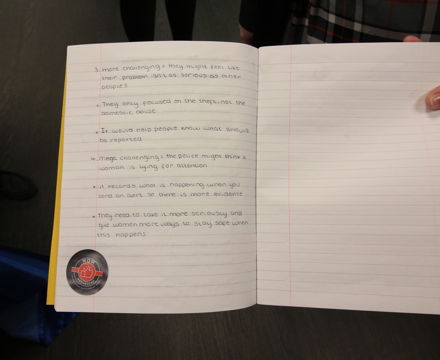 3. more challenging: they might feel like
their problem isnt as serious as other
peoples
• They only focused on the steps, not the
domestic abuse
• It would help people know what should
be reported
4. more challenging: the police might think a
woman is lying for attention
• it records what is happening when you
send an alert so there is more evidence
• they need to take it more seriously and
give women more ways to stay safe when
this happens